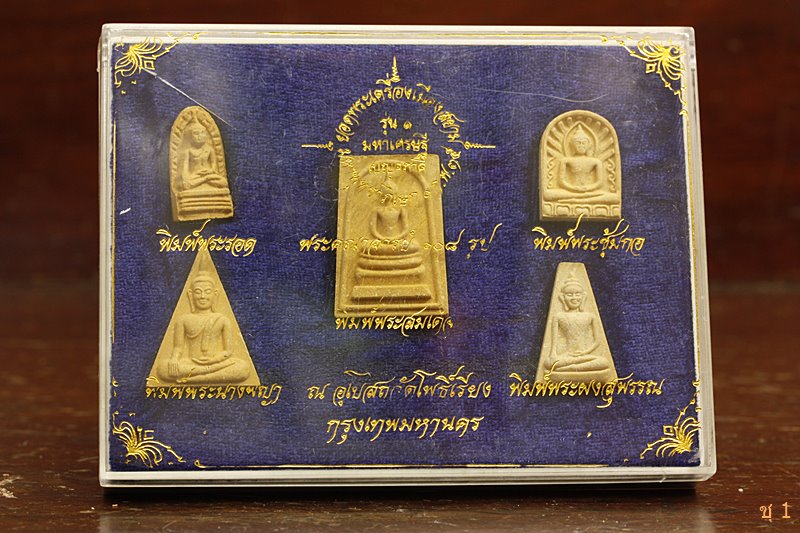 ยอดพระเครื่องเมืองสยาม
รุ่น ๑
มหาเศรษฐี
พิมพ์พระรอด
๑๐๘ รูป
พิมพ์พระซุ้มกอ
พิมพ์พระสมเด็จ
พิมพ์พระนางพญา
ณ อุโบสถวัดโพธิ์เรียง
พิมพ์พระผงสุพรรณ
กรุงเทพมหานคร
ชุ 1